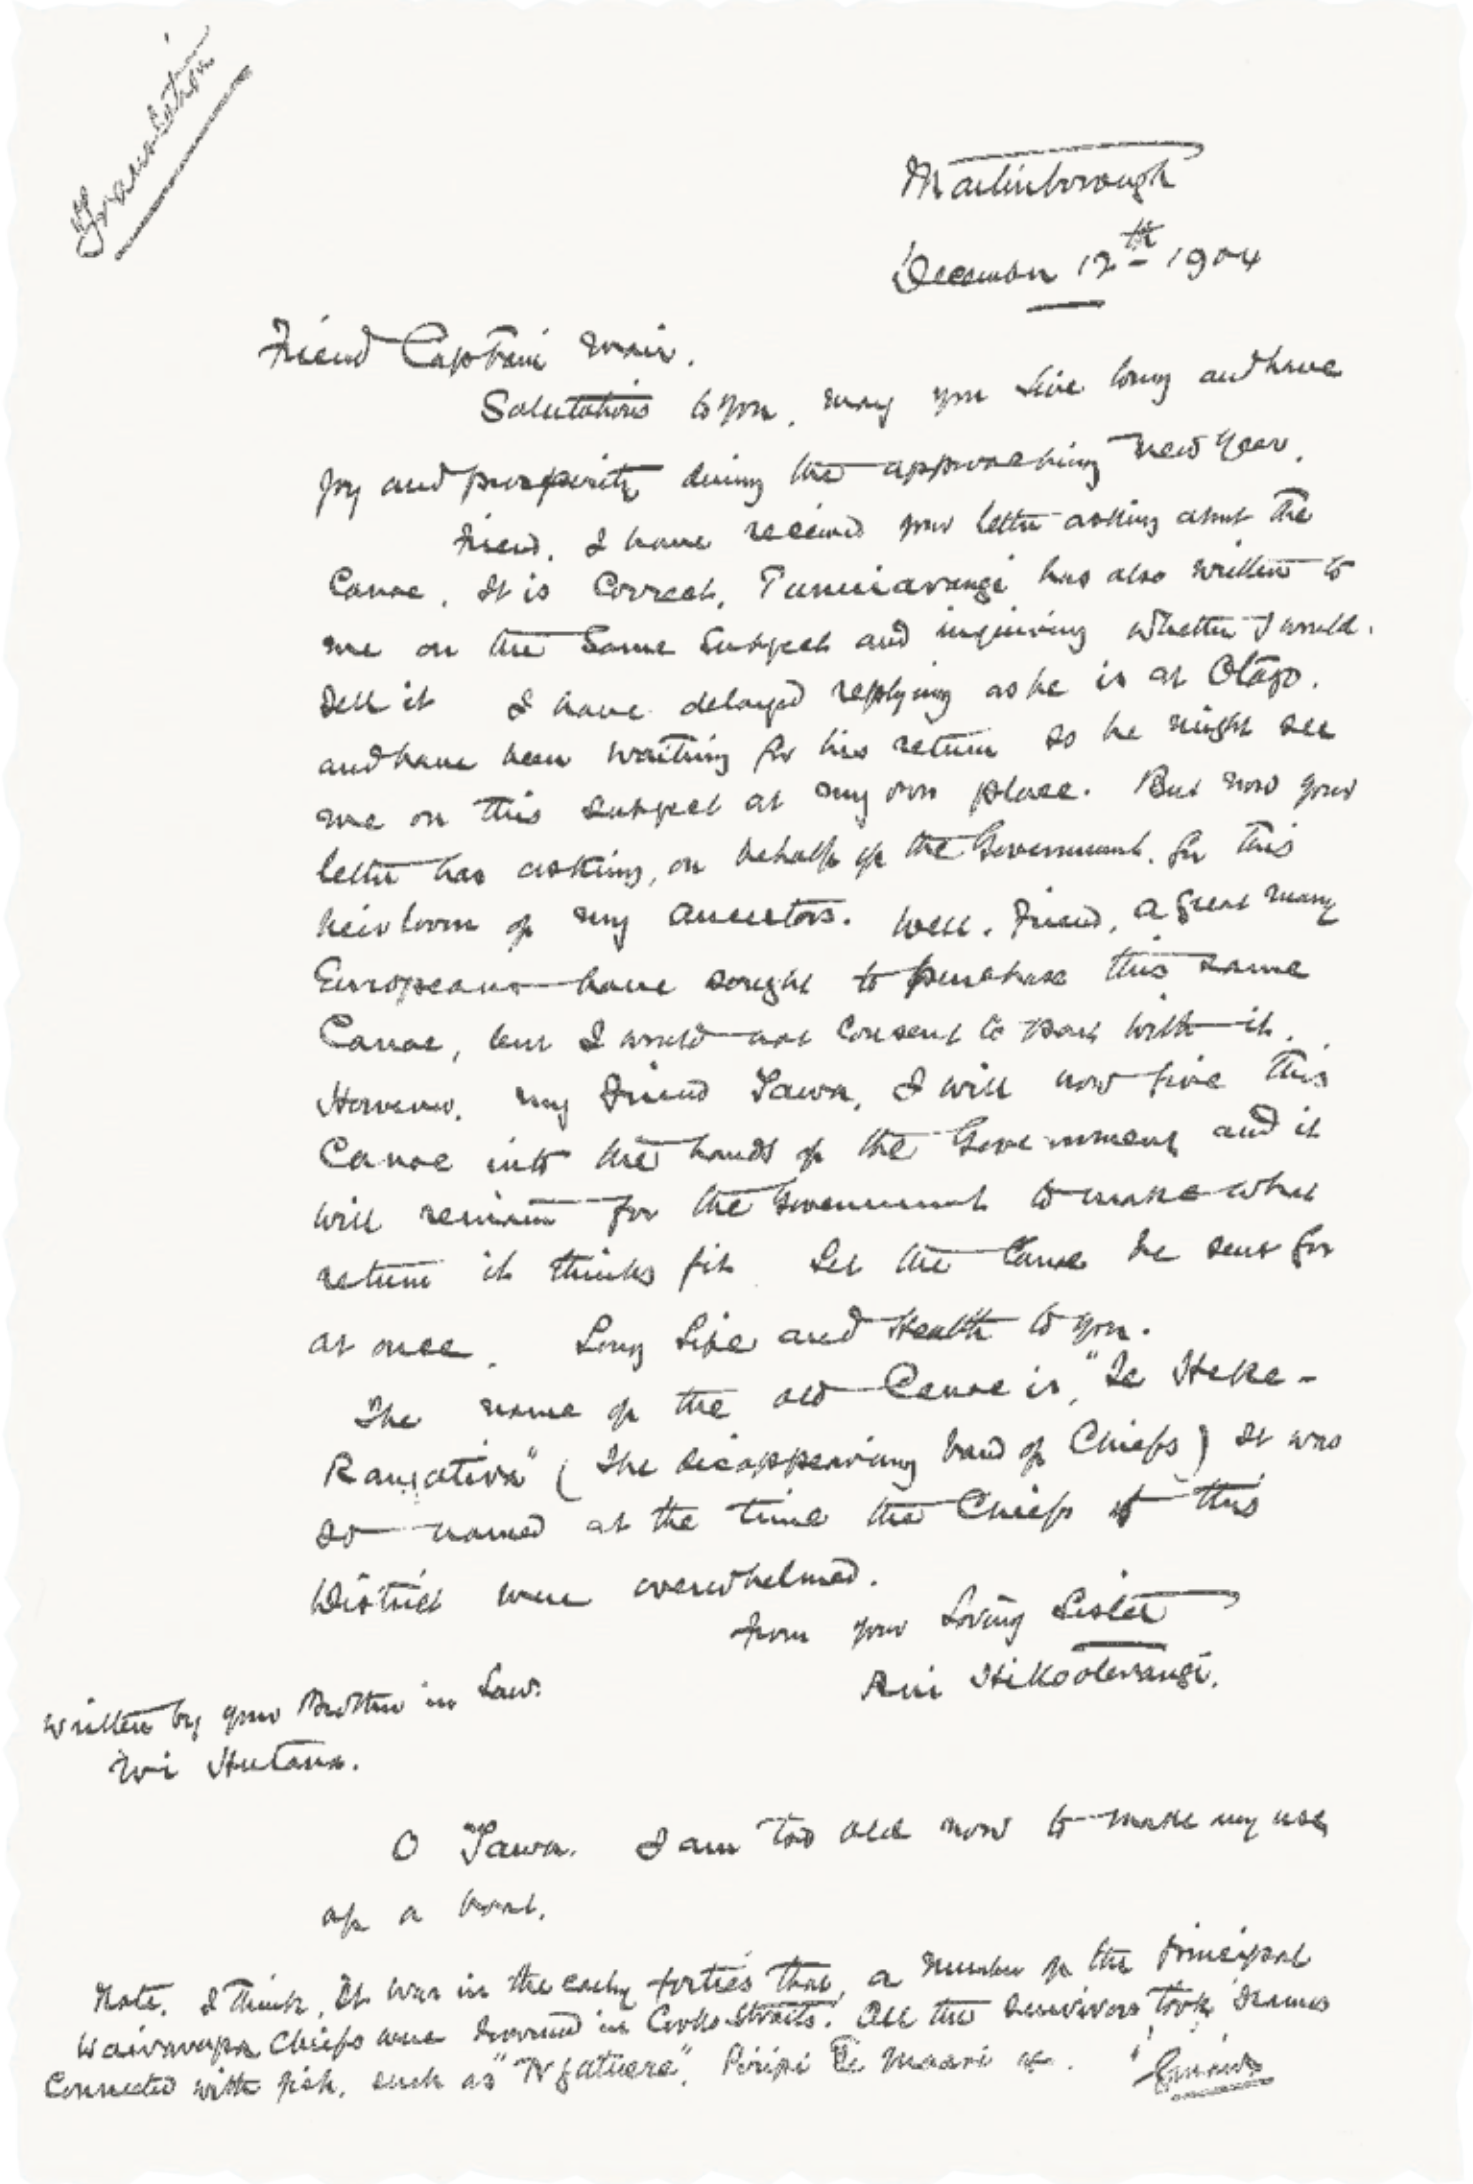 Translation
Martinborough
December 12th 1904
Friend Captain Mair.
Salutations to you, may you live long and have
joy and prosperity during the approaching New Year.
Friend, I have received your letter asking about the
Canoe. It is correct, Tunuiarangi has also written to
me on the same subject and inquiring whether I would
sell it I have delayed replying as he is at Otago.
and have been waiting for his return so he might see
me on this subject at my own place. But now your
letter has asking, on behalf of the Government, for this
heirloom of my ancestors. Well, Friend, a great many
Europeans have sought to purchase this same
Canoe, but I would not consent to part with it.
However, my Friend Tawa, I will now give this
Canoe into the hands of the Government and it
will remain for the Government to make what
return it thinks fit. Let the Canoe be sent for
at once. Long Life and Health to you.
The name of the old Canoe is, "Te Heke-
Rangatira" (The disappearing band of Chiefs) It was
so named at the time the Chiefs of this
District were overwhelmed.
From your Loving Sister
Hikooterangi.
Written by your Brother in Law.
Wi Hutana.
O Tawa. I am too old now to make any use
of a boat.
Note, I think, It was in the early forties that, a number of the principal
Wairarapa Chiefs were drowned in Cooks Straits. All the survivors took names
Connected with fish, such as "Ngatuere", Piripi Te Maari &c.